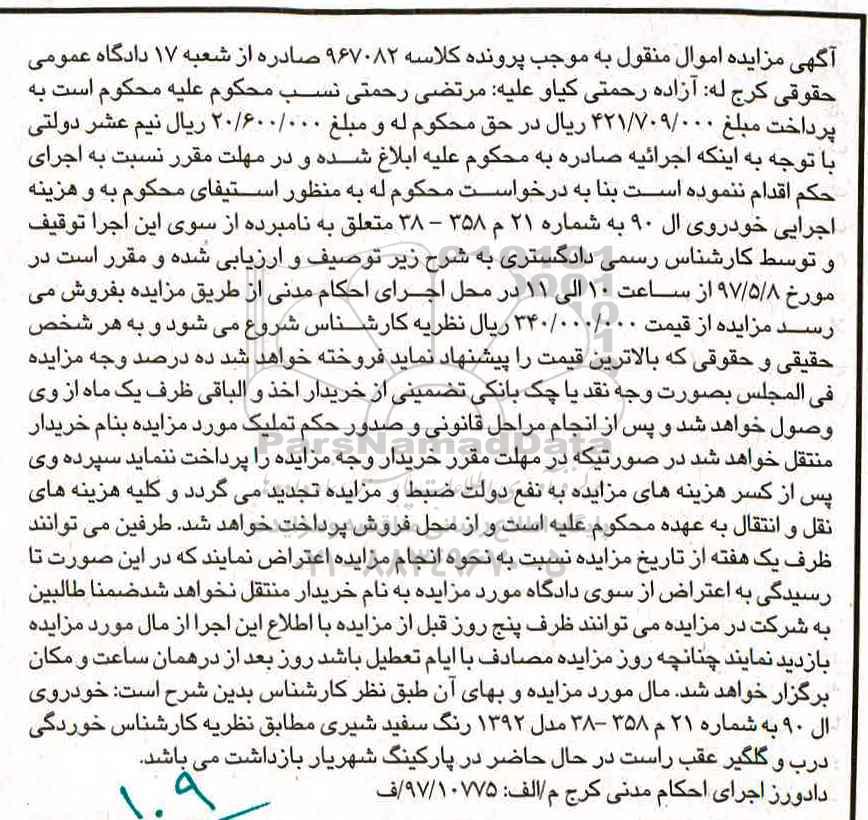 آگهی مزایده اموال منقول به موجب پرونده کلاسه ۹۶۷۰۸۲ صادره از شعبه ۱۷ دادگاه عمومی
حقوقی کرج له: آزاده رحمتی کیاو علیه: مرتضی رحمتی نسب محکوم علیه محکوم است به
پرداخت مبلغ ۴۲۱/۷۰۹/۰۰۰ ریال در حق محکوم له و مبلغ ۲۰/۶۰۰/۰۰۰ ریال نیم عشر دولتی
با توجه به اینکه اجرائیه صادره به محکوم علیه ابلاغ شده و در مهلت مقرر نسبت به اجرای
حکم اقدام ننموده است بنا به درخواست محکوم له به منظور استیفای محکوم به و هزینه
اجرایی خودروی ال ۹۰ به شماره ۲۱ م ۳۵۸ – ۳۸ متعلق به نامبرده از سوی این اجرا توقیف
و توسط کارشناس رسمی دادگستری به شرح زیر توصیف و ارزیابی شده و مقرر است در
مورخ ۹۷/۵/۸ از ساعت ۱۰ الی ۱۱ در محل اجرای احکام مدنی از طریق مزایده بفروش می
رسد مزایده از قیمت ۳۴۰/۰۰۰/۰۰۰ ریال نظریه کارشناس شروع می شود و به هر شخص
حقیقی و حقوقی که بالاترین قیمت را پیشنهاد نماید فروخته خواهد شد ده درصد وجه مزایده
فی المجلس بصورت وجه نقد یا چک بانکی تضمینی از خریدار اخذ و الباقی ظرف یک ماه از وی
وصول خواهد شد و پس از انجام مراحل قانونی و صدور حکم تملیک مورد مزایده بنام خریدار
منتقل خواهد شد در صورتیکه در مهلت مقرر خریدار وجه مزایده را پرداخت ننماید سپرده وی
پس از کسر هزینه های مزایده به نفع دولت ضبط و مزایده تجدید می گردد و کلیه هزینه های
نقل و انتقال به عهده محکوم علیه است و از محل فروش پرداخت خواهد شد. طرفین می توانند
ظرف یک هفته از تاریخ مزایده نسبت به نحوه انجام مزایده اعتراض نمایند که در این صورت تا
رسیدگی به اعتراض از سوی دادگاه مورد مزایده به نام خریدار منتقل نخواهد شدضمنا طالبین
به شرکت در مزایده می توانند ظرف پنج روز قبل از مزایده با اطلاع این اجرا از مال مورد مزایده
بازدید نمایند چنانچه روز مزایده مصادف با ایام تعطیل باشد روز بعد از درهمان ساعت و مکان
برگزار خواهد شد. مال مورد مزایده و بهای آن طبق نظر کارشناس بدین شرح است: خودروی
ال ۹۰ به شماره ۲۱ م ۳۵۸ –۳۸ مدل ۱۳۹۲ رنگ سفید شیری مطابق نظریه کارشناس خوردگی
درب و گلگیر عقب راست در حال حاضر در پارکینگ شهریار بازداشت می باشد.
دادورز اجرای احکام مدنی کرج م/الف: ۹۷/۱۰۷۷۵/ف
۱۰۹
ParsNamadData